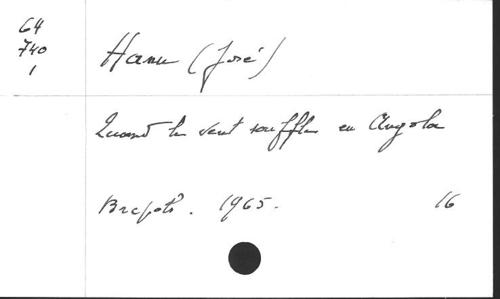 64
740
1
Hanu (José)
Quand le vent souffle en Angola
Brepols. 1965. 16